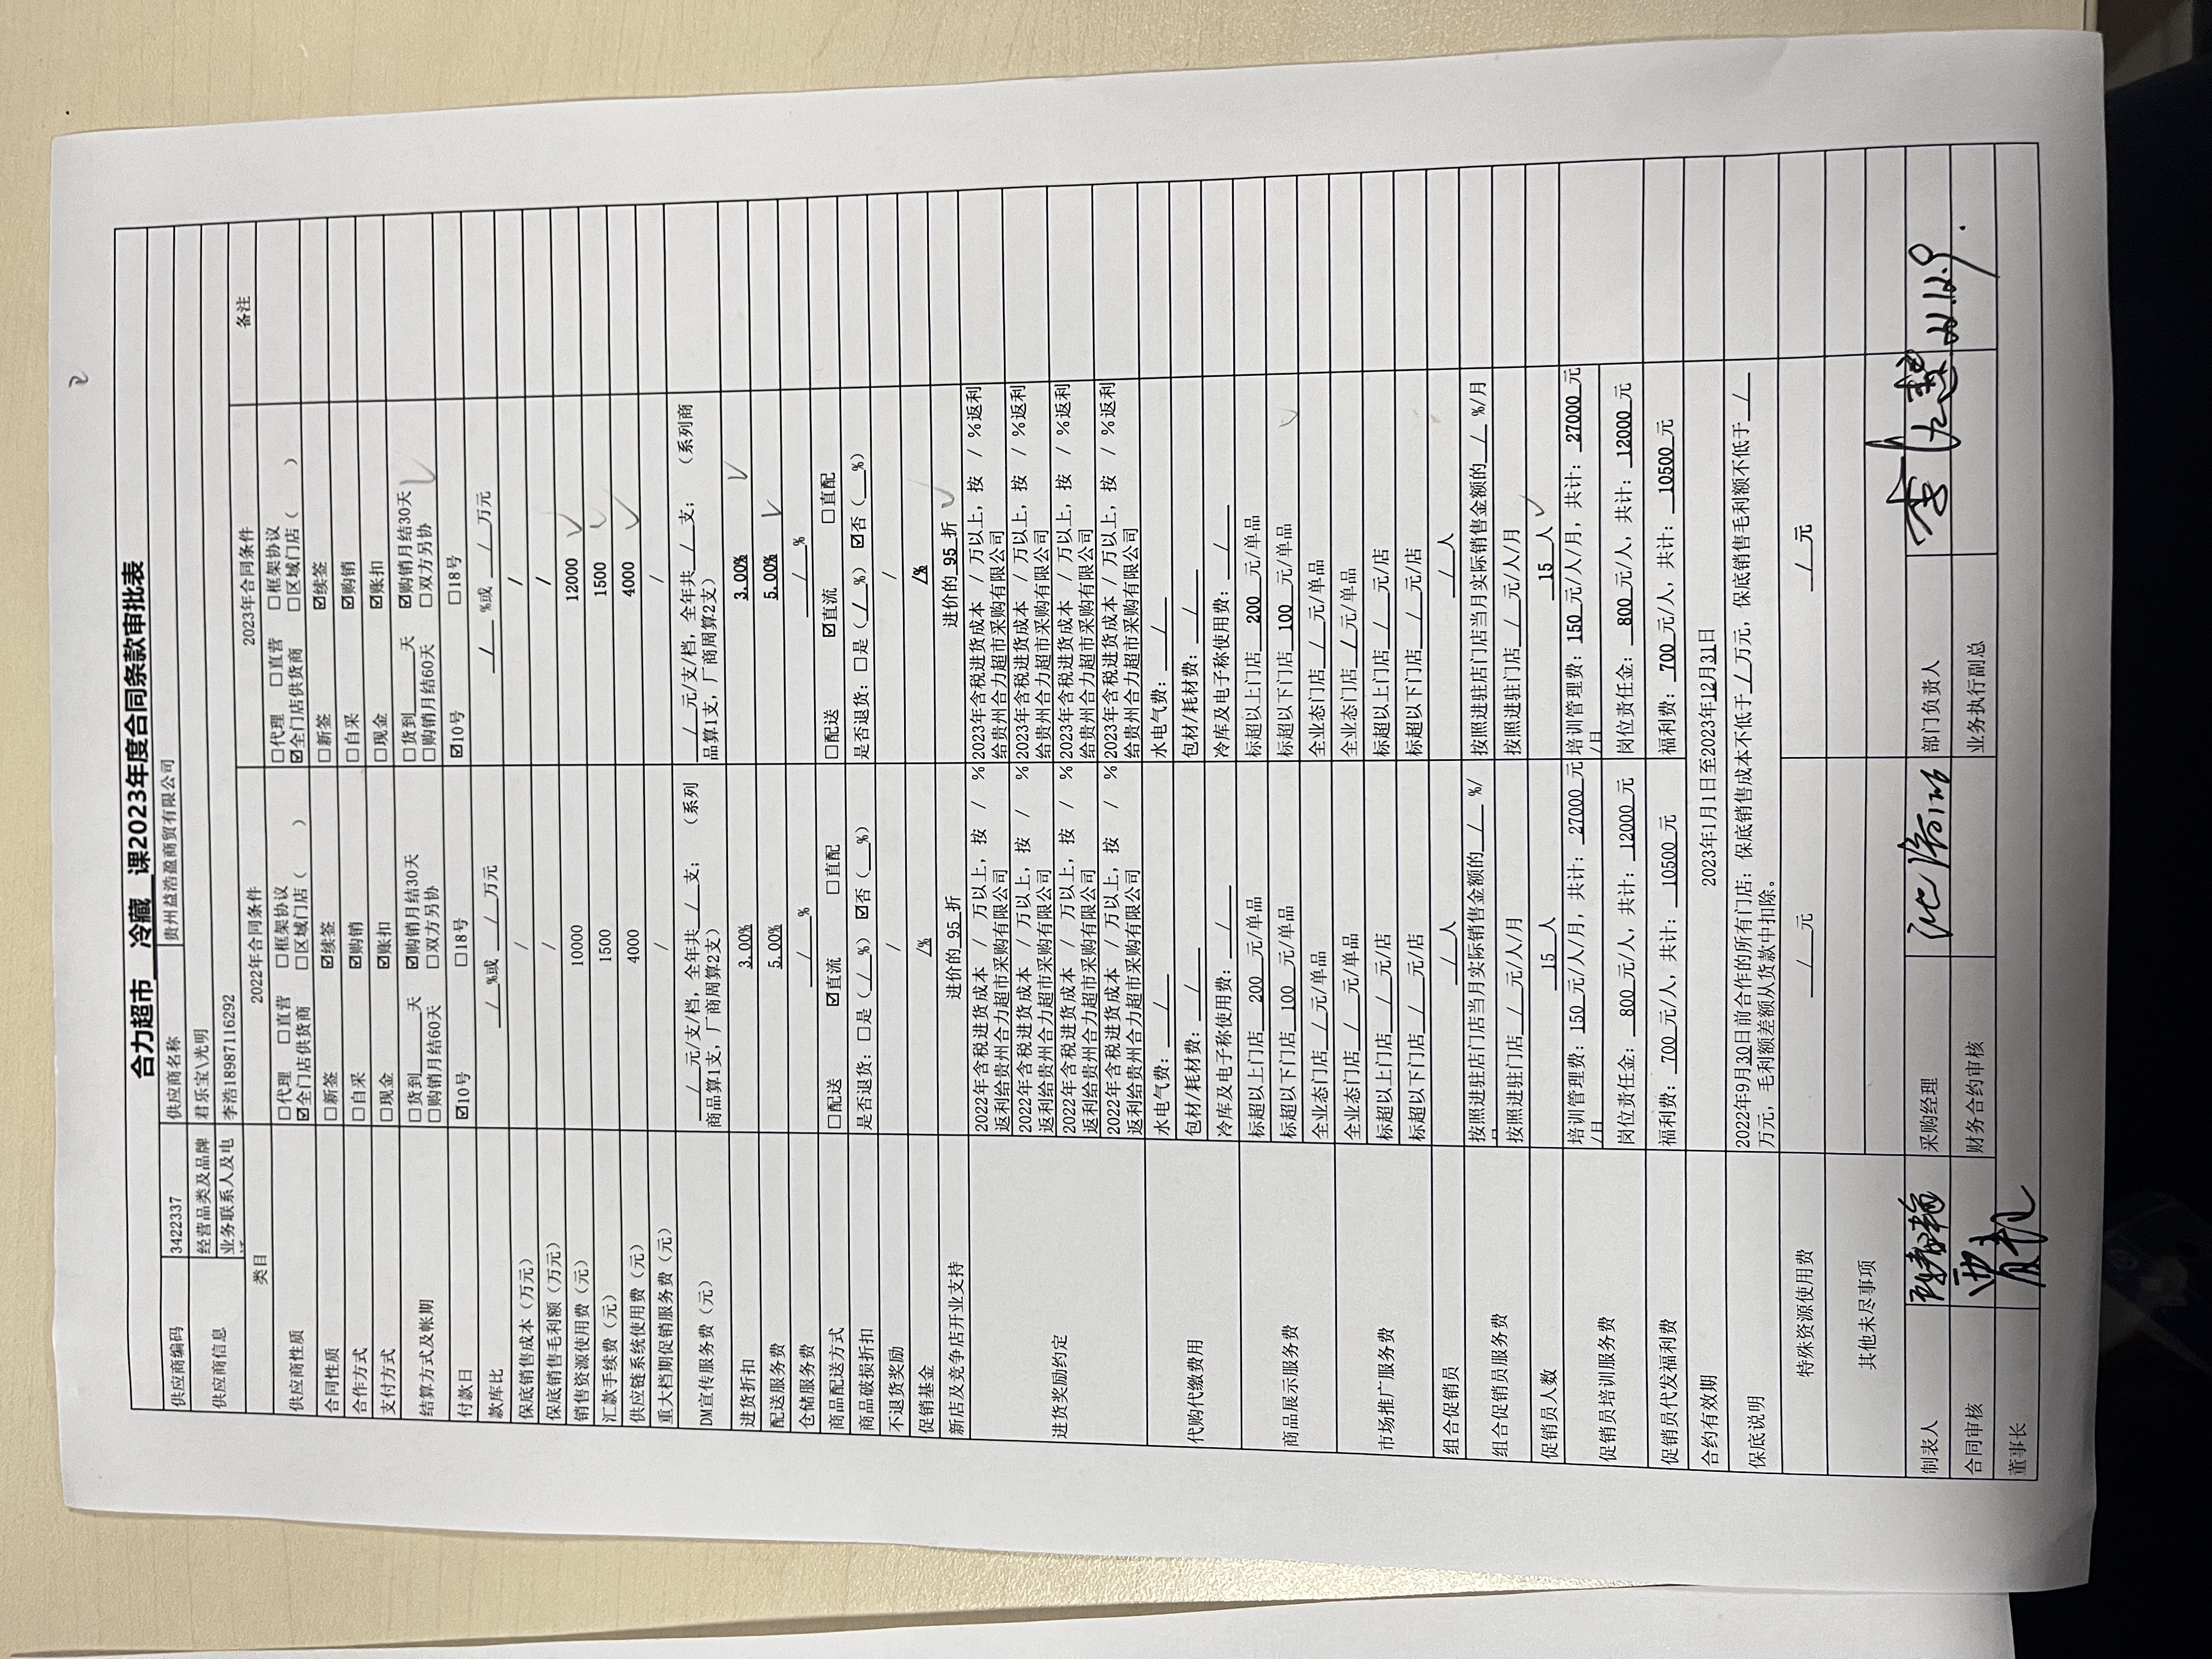 合力超市 冷藏 课2023年度合同条款审批表
供应商编码 3422337 供应商名称 贵州益浩盈商贸有限公司
供应商信息 经营品类及品牌 君乐宝\光明
业务联系人及电话 李浩18987116292
类目 2022年合同条件 2023年合同条件 备注
供应商性质 □代理 □直营 □框架协议 □代理 □直营 □框架协议
☑全门店供货商 □区域门店（ ） ☑全门店供货商 □区域门店（ ）
合同性质 □新签 ☑续签 □新签 ☑续签
合作方式 □自采 ☑购销 □自采 ☑购销
支付方式 □现金 ☑账扣 □现金 ☑账扣
结算方式及帐期 □货到___天 ☑购销月结30天 □货到___天 ☑购销月结30天
□购销月结60天 □双方另协 □购销月结60天 □双方另协
付款日 ☑10号 □18号 ☑10号 □18号
款库比 / %或 / 万元 / %或 / 万元
保底销售成本（万元） / /
保底销售毛利额（万元） / /
销售资源使用费（元） 10000 12000
汇款手续费（元） 1500 1500
供应链系统使用费（元） 4000 4000
重大档期促销服务费（元） / /
DM宣传服务费（元） / 元/支/档，全年共 / 支；（系列商品算1支，厂商周算2支） / 元/支/档，全年共 / 支；（系列商品算1支，厂商周算2支）
进货折扣 3.00% 3.00%
配送服务费 5.00% 5.00%
仓储服务费 / % / %
商品配送方式 □配送 ☑直流 □直配 □配送 ☑直流 □直配
商品破损折扣 是否退货：□是（ / %）☑否（ %） 是否退货：□是（ / %）☑否（ %）
不退货奖励 / /
促销基金 /% /%
新店及竞争店开业支持 进价的 95 折 进价的 95 折
进货奖励约定 2022年含税进货成本 / 万以上，按 / %返利给贵州合力超市采购有限公司 2023年含税进货成本 / 万以上，按 / %返利给贵州合力超市采购有限公司
2022年含税进货成本 / 万以上，按 / %返利给贵州合力超市采购有限公司 2023年含税进货成本 / 万以上，按 / %返利给贵州合力超市采购有限公司
2022年含税进货成本 / 万以上，按 / %返利给贵州合力超市采购有限公司 2023年含税进货成本 / 万以上，按 / %返利给贵州合力超市采购有限公司
2022年含税进货成本 / 万以上，按 / %返利给贵州合力超市采购有限公司 2023年含税进货成本 / 万以上，按 / %返利给贵州合力超市采购有限公司
代购代缴费用 水电气费： / 水电气费： /
包材/耗材费： / 包材/耗材费： /
冷库及电子称使用费： / 冷库及电子称使用费： /
商品展示服务费 标超以上门店 200 元/单品 标超以上门店 200 元/单品
标超以下门店 100 元/单品 标超以下门店 100 元/单品
全业态门店 / 元/单品 全业态门店 / 元/单品
市场推广服务费 全业态门店 / 元/单品 全业态门店 / 元/单品
标超以上门店 / 元/店 标超以上门店 / 元/店
标超以下门店 / 元/店 标超以下门店 / 元/店
组合促销员 / 人 / 人
组合促销员服务费 按照进驻店门店当月实际销售金额的 / %/月 按照进驻店门店当月实际销售金额的 / %/月
按照进驻门店 / 元/人/月 按照进驻门店 / 元/人/月
促销员人数 15 人 15 人
促销员培训服务费 培训管理费：150 元/人/月，共计：27000 元/月 培训管理费：150 元/人/月，共计：27000 元/月
岗位责任金： 800 元/人，共计：12000 元 岗位责任金： 800 元/人，共计：12000 元
促销员代发福利费 福利费： 700 元/人，共计： 10500 元 福利费： 700 元/人，共计： 10500 元
合约有效期 2023年1月1日至2023年12月31日
保底说明 2022年9月30日前合作的所有门店；保底销售成本不低于 / 万元，保底销售毛利额不低于 /
万元，毛利额差额从货款中扣除。
特殊资源使用费 / 元 / 元
其他未尽事项
制表人 采购经理 部门负责人 22.12.9
合同审核 财务合约审核 业务执行副总
董事长